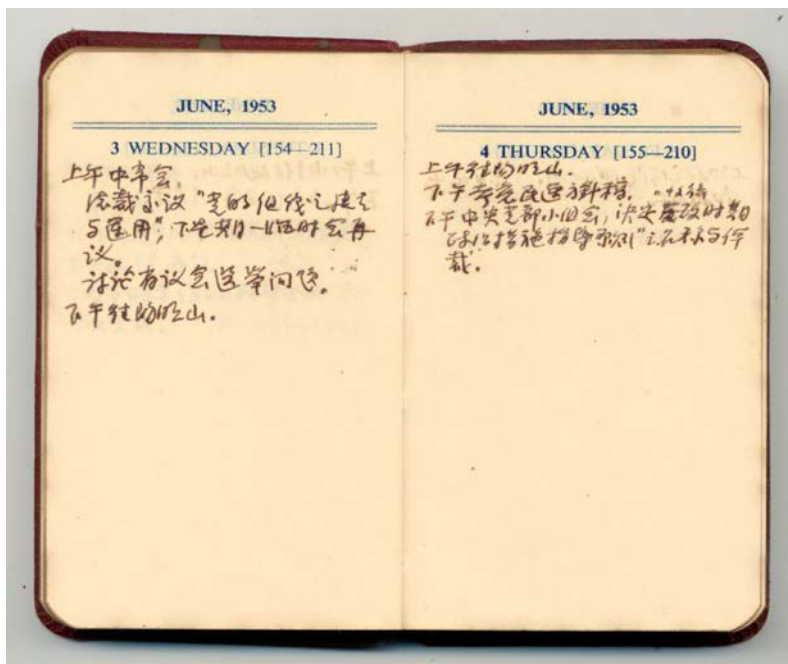 JUNE, 1953
3 WEDNESDAY [154—211]
上午中常会,
总裁交议"党的组织之建立
与运用", 下星期一临时会再
议。
讨论省议会选举问题。
下午往阳明山。
JUNE, 1953
4 THURSDAY [155—210]
上午往阳明山.
下午考虑民运方针稿.
下午中央党部小组会, 决定 时期
政治措施指导原则"之名称与体
裁.